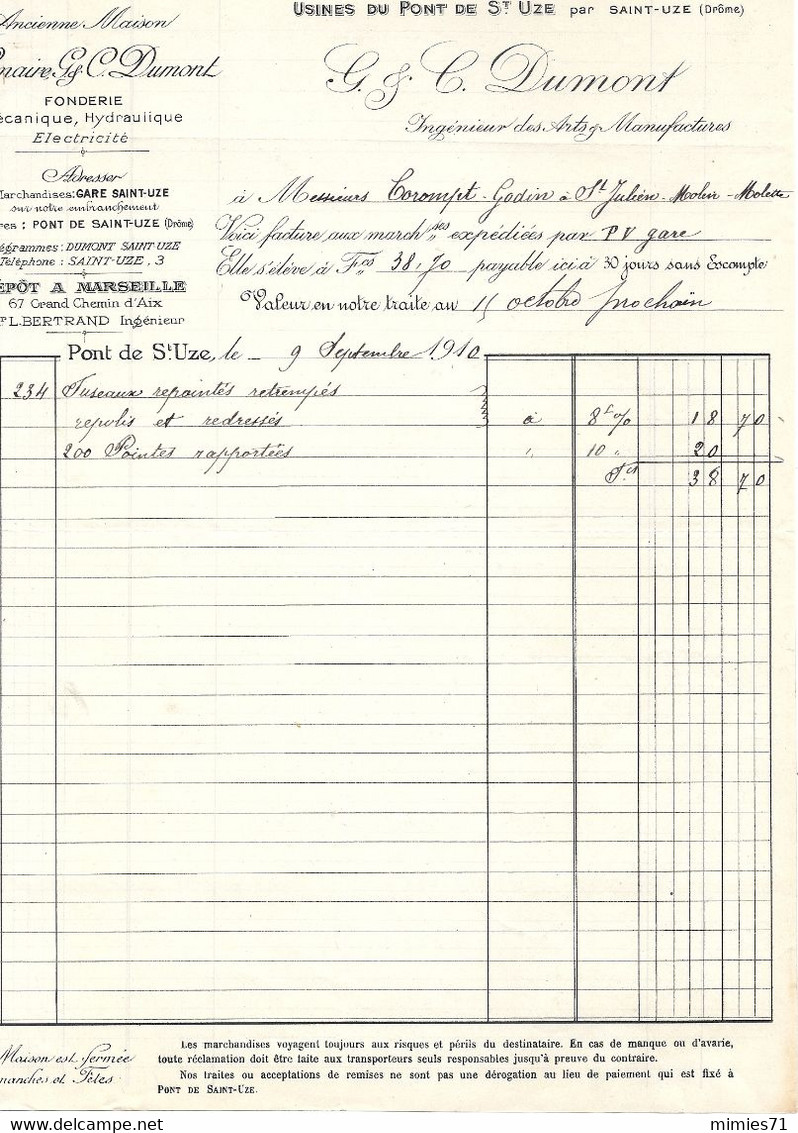 Ancienne Maison
G. & C. Dumont
FONDERIE
écanique, Hydraulique
Electricité
Adresser
Marchandises: GARE SAINT-UZE
sur notre embranchement
res : PONT DE SAINT-UZE (Drôme)
égrammes: DUMONT SAINT UZE
Téléphone : SAINT-UZE, 3
ÉPÔT A MARSEILLE
67 Grand Chemin d'Aix
L. BERTRAND Ingénieur
USINES DU PONT DE ST UZE par SAINT-UZE (Drôme)
G. & C. Dumont
Ingénieur des Arts & Manufactures
à Messieurs Corompt-Godin à St Julien-Molin-Molette
Voici facture aux march ses expédiées par PV gare
Elle s'élève à Fcs 38,70 payable ici à 30 jours sans Escompte
Valeur en notre traite au 15 octobre prochain
Pont de St Uze, le 9 Septembre 1910
234 Fuseaux repointés retrempés
repolis et redressés à 8 f % 18 70
200 Pointes rapportées " 10 " 20
Fcs 38 70
Maison est fermée
manches et Fêtes
Les marchandises voyagent toujours aux risques et périls du destinataire. En cas de manque ou d'avarie,
toute réclamation doit être faite aux transporteurs seuls responsables jusqu'à preuve du contraire.
Nos traites ou acceptations de remises ne sont pas une dérogation au lieu de paiement qui est fixé à
PONT DE SAINT-UZE.
www.delcampe.net
mimies71